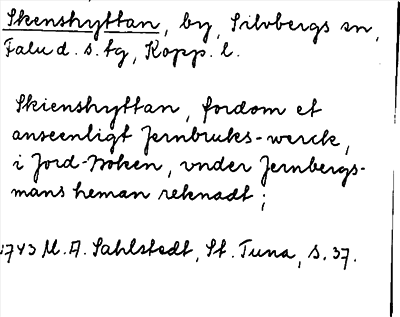 Skenshyttan, by, Silvbergs sn,
Falu d. s. tg, Kopp. l.
Skienshyttan, fordom et
anseenligt Jernbruks-werck,
i Jord-Boken, vnder Jernbergs-
mans heman reknadt;
1743 M. A. Sahlstedt, St. Tuna, s. 37.